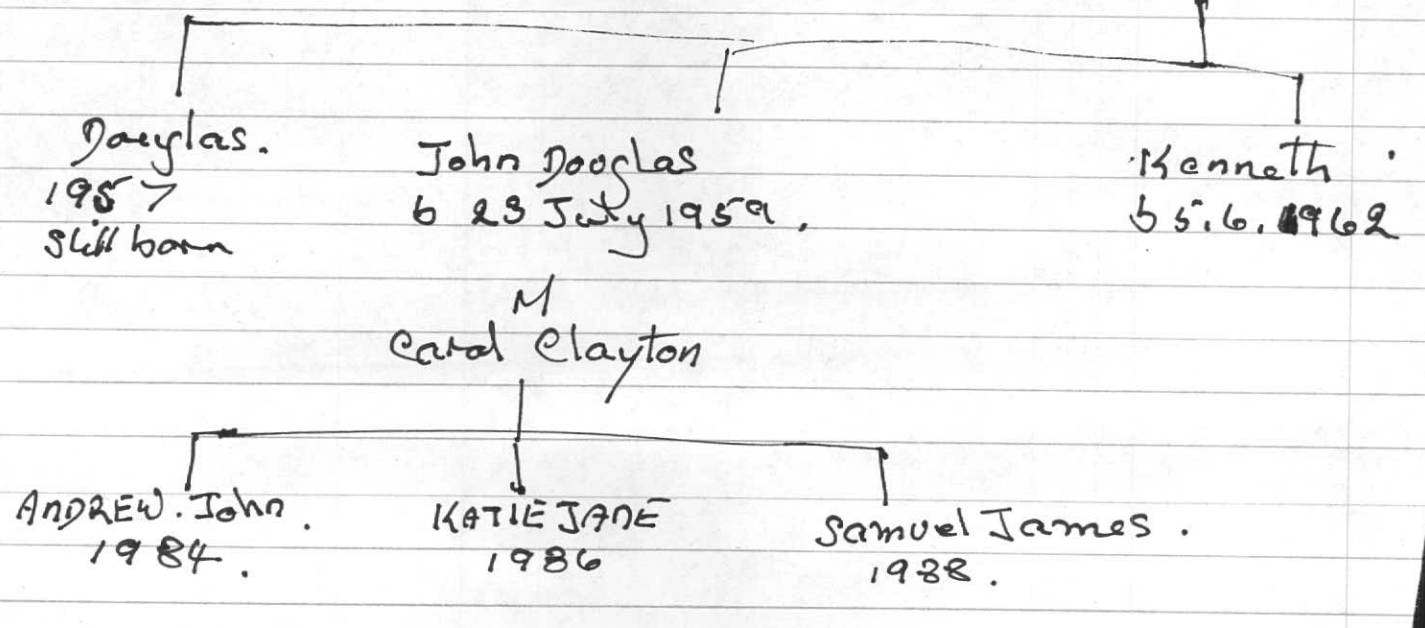 Douglas.
1957
Still born
John Douglas
b 23 July 1959.
M
Carol Clayton
Kenneth
b 5.6.1962
ANDREW. John.
1984.
KATIE JANE
1986
Samuel James.
1988.